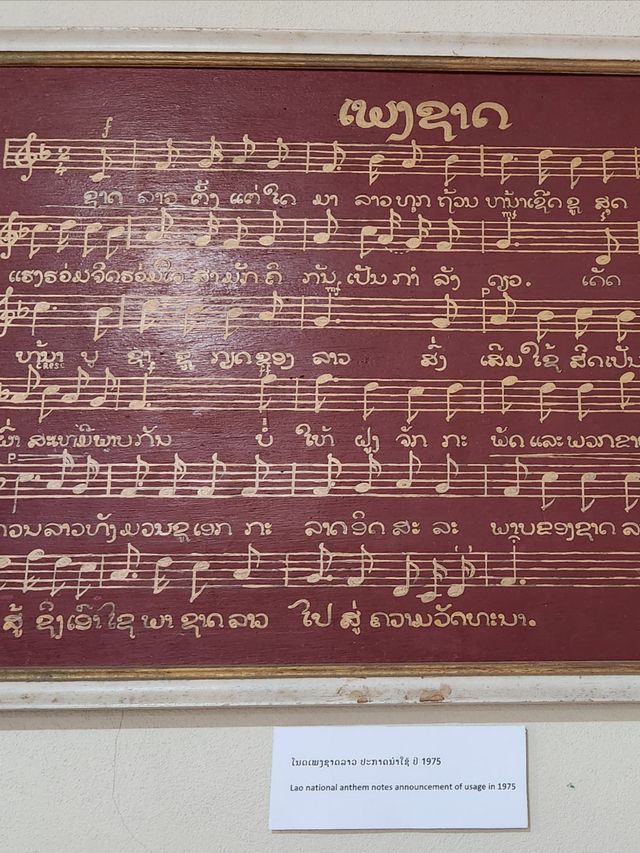 ເພງຊາດ
f
ຊາດ ລາວ ຕັ້ງ ແຕ່ ໃດ ມາ ລາວ ທຸກ ຖ້ວນ ຫນ້າເຊີດ ຊູ ສຸດ
ແຮງຮ່ວມຈິດຮ່ວມໃຈ ສາມັກ ຄີ ກັນ ເປັນ ກຳ ລັງ ດຽວ. ເດັດ
P
ຫນ້າ ບູ ຊາ ຊູ ກຽດ ຂອງ ລາວ ສົ່ງ ເສີມ ໃຊ້ ສິດ ເປັນ
CRESC
ເຜົ່າ ສະເໝີພາບກັນ ບໍ່ ໃຫ້ ຝູງ ຈັກ ກະ ພັດ ແລະ ພວກຂາຍ
P
ລາວທັງມວນຊູເອກ ກະ ລາດ ອິດ ສະ ລະ ພາບຂອງຊາດ
ສູ້ ຊິງເອົາໄຊ ພາ ຊາດ ລາວ ໄປ ສູ່ ຄວາມວັດທະນາ.
ໂນດເພງຊາດລາວ ປະກາດນຳໃຊ້ ປີ 1975
Lao national anthem notes announcement of usage in 1975